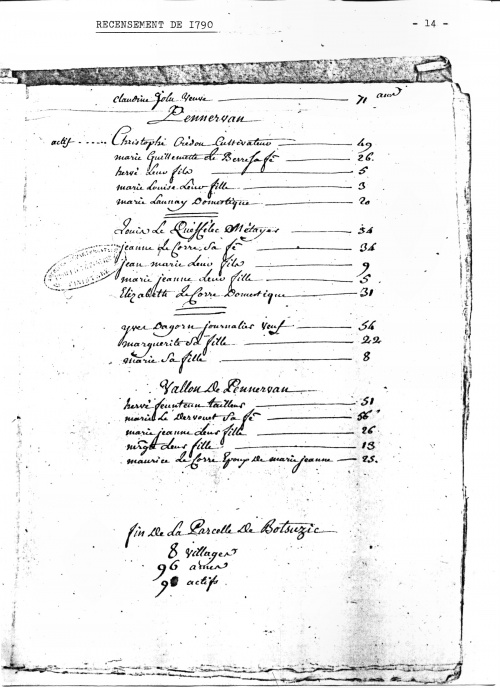 RECENSEMENT DE 1790 - 14 -
claudine Veuve 71 ans
Pennervan
actif ..... Christophe Crédou Cultivateur 49
marie Guillemette de Berre sa fe 26.
hervé Leur fils 5
marie Louise Leur fille 3
marie Launay Domestique 20
Louis Le Quéffélec Métayer 34
jeanne Le Corre Sa fe 34
jean marie Leur fils 9
marie jeanne Leur fille 5
Elizabeth Le Corre Domestique 31
yves Dagorn journalier Veuf 54
marguerite Sa fille 22
marie Sa fille 8
Vallon De Pennervan
hervé feunteun tailleur 51
marie Le Dervouet Sa fe 56
marie jeanne Leur fille 26
Leur fille 13
maurice Le Corre Epoux De marie jeanne 25.
fin De La Parcelle De Botsuzic
8 villages
96 ames
9 actifs